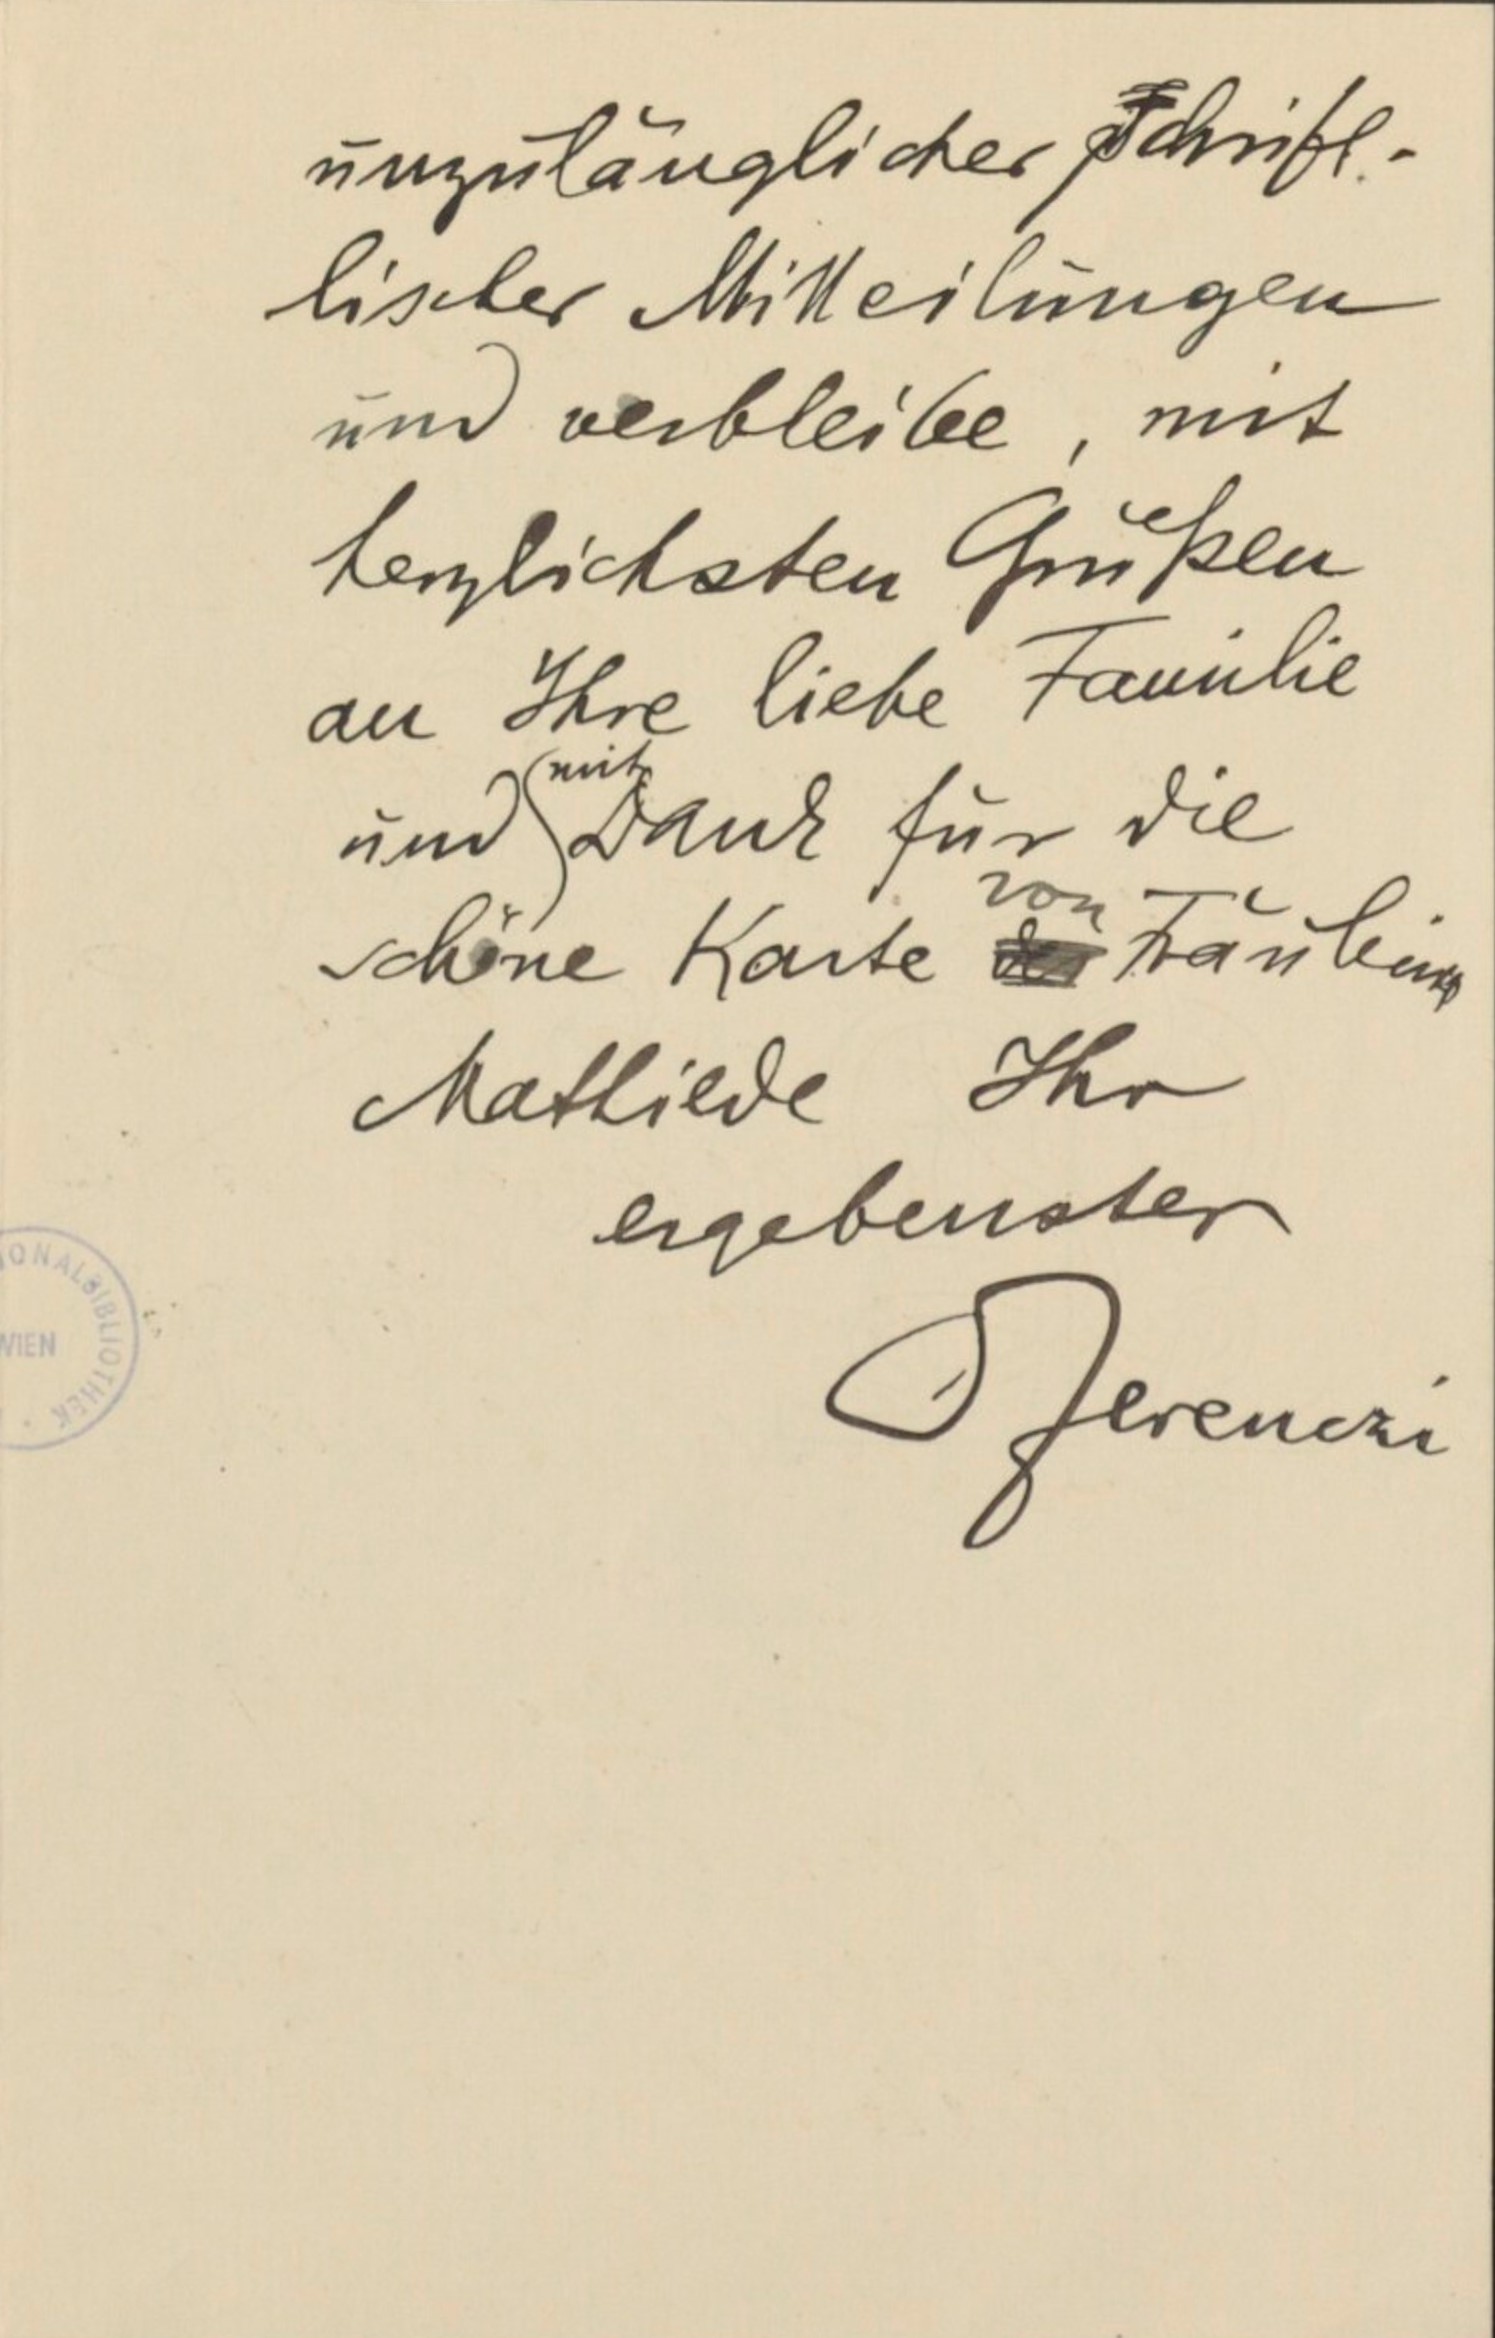 unzulänglicher schrift-
lischer Mitteilungen
und verbleibe, mit
herzlichsten Grüßen
an Ihre liebe Familie
und mit Dank für die
schöne Karte von Fräulein
Mathilde Ihr
ergebenster
Ferenczi
IONALBIBLIOTHEK
WIEN